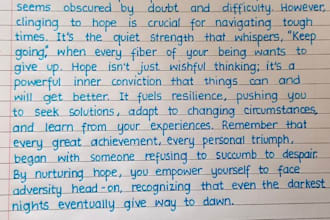 seems obscured by doubt and difficulty. However,
clinging to hope is crucial for navigating tough
times. It's the quiet strength that whispers, "Keep
going," when every fiber of your being wants to
give up. Hope isn't just wishful thinking; it's a
powerful inner conviction that things can and
will get better. It fuels resilience, pushing you
to seek solutions, adapt to changing circumstances,
and learn from your experiences. Remember that
every great achievement, every personal triumph,
began with someone refusing to succumb to despair.
By nurturing hope, you empower yourself to face
adversity head-on, recognizing that even the darkest
nights eventually give way to dawn.